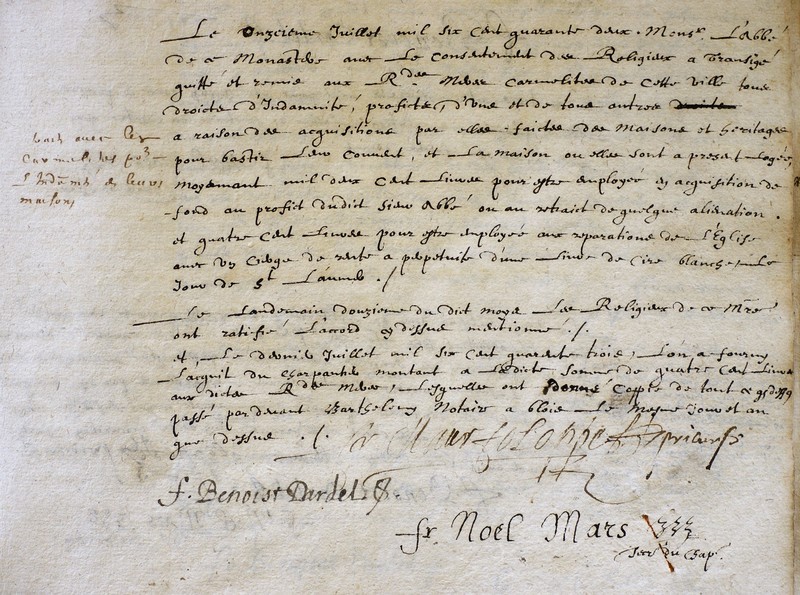 Le Onzieme Juillet mil six cent quarante deux. Monsr. L'Abbé
de ce Monastere avec Le Consentement des Religieux a transigé
quitté et remis aux Rdes Meres Carmelites de cette ville tous
droicts d'Indamnité, proficts, d'une et de tous autres droicts
a raison des acquisitions par elles faictes des Maisons et heritages
pour bastir Leur Couvent, et La maison ou elles sont a present Logées,
moyennant mil deux Cent Livres pour estre employée en acquisition de
fond au profict dudit Sieur Abbé ou au retraict de quelque alienation.
et quatre Cent Livres pour estre employée aux reparations de L'Eglise
avec un Cierge de rente a perpetuité d'une Livre de Cire blanche, Le
Jour de St Laumer ./
avec les
Carmelites po.
L'Indemnité de leurs
maisons
Le Landemain douzieme du dict moys Les Religieux de ce Mre
ont ratifié L'accord cy dessus mentionne ./.
et, Le dernier Juillet mil six Cent quarente trois, L'on a fourny
L'acquit du Charpantier montant a Ladicte Somme de quatre Cent Livres
aux dictes Rdes Meres, Lesquelles ont donné Coppie de tout ce
passé par devant Barthelemy Notaire a blois Le Mesme Jour et an
que dessus ./.
prieur
f. Benoist Dardel
fr Noel Mars
Secr du Chap.